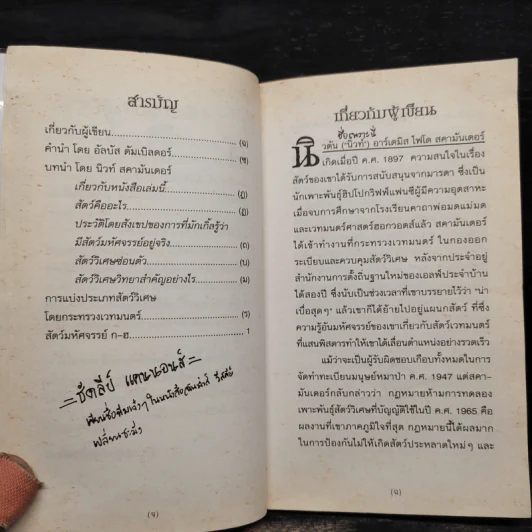 สารบัญ
เกี่ยวกับผู้เขียน (ฉ)
คำนำ โดย อัลบัส ดัมเบิลดอร์ (ซ)
บทนำ โดย นิวท์ สคามันเดอร์
เกี่ยวกับหนังสือเล่มนี้ (ฏ)
สัตว์คืออะไร (ฏ)
ประวัติโดยสังเขปของการที่มักเกิ้ลรู้ว่า
มีสัตว์มหัศจรรย์อยู่จริง (ถ)
สัตว์วิเศษซ่อนตัว (น)
สัตว์วิเศษวิทยาสำคัญอย่างไร (ม)
การแบ่งประเภทสัตว์วิเศษ
โดยกระทรวงเวทมนตร์ (ร)
สัตว์มหัศจรรย์ ก-ฮ 1
ชัดลีย์ แคนนอนส์
(จ)
เกี่ยวกับผู้เขียน
นิวตัน ("นิวท์") อาร์เตมิส ไฟโด สคามันเดอร์
เกิดเมื่อปี ค.ศ. 1897 ความสนใจในเรื่อง
สัตว์ของเขาได้รับการสนับสนุนจากมารดา ซึ่งเป็น
นักเพาะพันธุ์ฮิปโปกริฟฟ์แฟนซีผู้มีความอุตสาหะ
เมื่อจบการศึกษาจากโรงเรียนคาถาพ่อมดแม่มด
และเวทมนตร์ศาสตร์ฮอกวอตส์แล้ว สคามันเดอร์
ได้เข้าทำงานที่กระทรวงเวทมนตร์ ในกองออก
ระเบียบและควบคุมสัตว์วิเศษ หลังจากประจำอยู่
สำนักงานการตั้งถิ่นฐานใหม่ของเอลฟ์ประจำบ้าน
ได้สองปี ซึ่งนับเป็นช่วงเวลาที่เขาบรรยายไว้ว่า "น่า
เบื่อสุดๆ" แล้วเขาก็ได้ย้ายไปอยู่แผนกสัตว์ ที่ซึ่ง
ความรู้อันมหัศจรรย์ของเขาเกี่ยวกับสัตว์เวทมนตร์
ที่แสนพิสดารทำให้เขาได้เลื่อนตำแหน่งอย่างรวดเร็ว
แม้ว่าจะเป็นผู้รับผิดชอบเกือบทั้งหมดในการ
จัดทำทะเบียนมนุษย์หมาป่า ค.ศ. 1947 แต่สคา-
มันเดอร์กลับกล่าวว่า กฎหมายห้ามการทดลอง
เพาะพันธุ์สัตว์วิเศษที่บัญญัติใช้ในปี ค.ศ. 1965 คือ
ผลงานที่เขาภาคภูมิใจที่สุด กฎหมายนี้ได้ผลมาก
ในการป้องกันไม่ให้เกิดสัตว์ประหลาดใหม่ๆ และ
(ฉ)